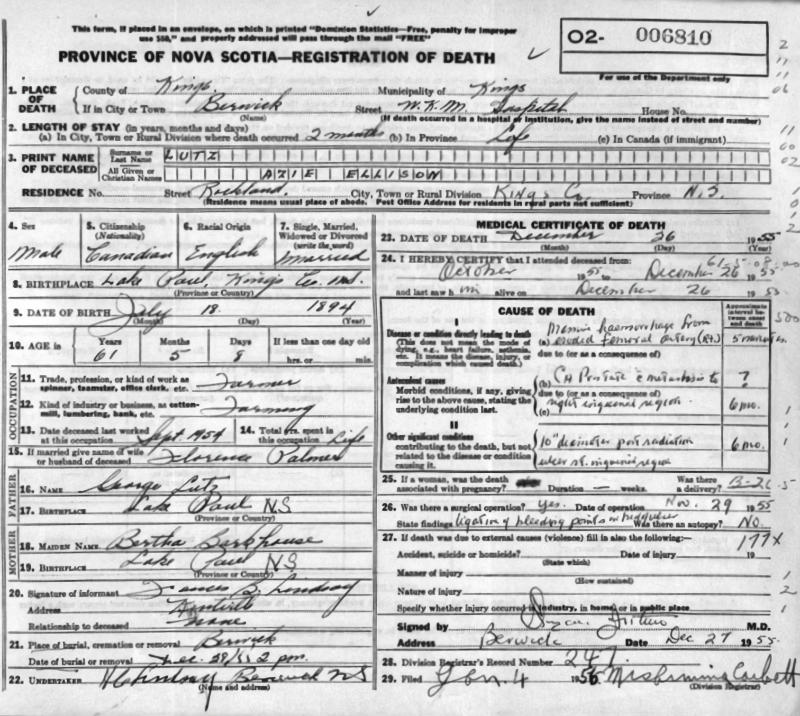 This form, if placed in an envelope, on which is printed "Dominion Statistics—Free, penalty for improper
use $50," and properly addressed will pass through the mail "FREE"
PROVINCE OF NOVA SCOTIA—REGISTRATION OF DEATH
O2- 006810
For use of the Department only
1. PLACE OF DEATH County of Kings Municipality of Kings
If in City or Town Berwick Street W.K.M. Hospital House No.
(Name) (If death occurred in a hospital or institution, give the name instead of street and number)
2. LENGTH OF STAY (in years, months and days)
(a) In City, Town or Rural Division where death occurred 2 months (b) In Province Life (c) In Canada (if immigrant)
3. PRINT NAME OF DECEASED Surname or Last Name LUTZ
All Given or Christian Names AZIE ELLISON
RESIDENCE No. Street Rockland. City, Town or Rural Division Kings Co. Province N.S.
(Residence means usual place of abode. Post Office Address for residents in rural parts not sufficient)
4. Sex 5. Citizenship (Nationality) 6. Racial Origin 7. Single, Married, Widowed or Divorced (write the word)
Male Canadian English Married
8. BIRTHPLACE Lake Paul, Kings Co.
(Province or Country)
9. DATE OF BIRTH July 18 1894
(Month) (Day) (Year)
10. AGE in Years Months Days If less than one day old
61 5 8 hrs. or min.
OCCUPATION
11. Trade, profession, or kind of work as spinner, teamster, office clerk, etc. Farmer
12. Kind of industry or business, as cotton-mill, lumbering, bank, etc. Farming
13. Date deceased last worked at this occupation Sept. 1954 14. Total yrs. spent in this occupation Life
15. If married give name of wife or husband of deceased Florence Palmer
FATHER
16. NAME George Lutz
17. BIRTHPLACE Lake Paul N.S
(Province or Country)
MOTHER
18. MAIDEN NAME Bertha Barkhouse
19. BIRTHPLACE Lake Paul N.S
(Province or Country)
20. Signature of informant Frances B. Lindsay
Address Kentville
Relationship to deceased None
21. Place of burial, cremation or removal Berwick
Date of burial or removal Dec. 28/55 2 pm.
22. UNDERTAKER Lindsay Berwick NS
(Name and address)
MEDICAL CERTIFICATE OF DEATH
23. DATE OF DEATH December 26 1955
(Month) (Day) (Year)
24. I HEREBY CERTIFY that I attended deceased from:
October 1955 to December 26 1955
and last saw him alive on December 26 1955
CAUSE OF DEATH
Approximate interval between onset and death
I
Disease or condition directly leading to death
(This does not mean the mode of dying, e.g., heart failure, asthenia, etc. It means the disease, injury, or complication which caused death.)
(a) Massive haemorrhage from eroded femoral artery (Rt.) 5 minutes
due to (or as a consequence of)
Antecedent causes
Morbid conditions, if any, giving rise to the above cause, stating the underlying condition last.
(b) CA Prostate c metastasis to ?
due to (or as a consequence of)
(c) right inguinal region. 6 mo.
II
Other significant conditions
contributing to the death, but not related to the disease or condition causing it.
10" diameter post radiation 6 mo.
ulcer rt. inguinal region
25. If a woman, was the death associated with pregnancy? Duration — weeks. Was there a delivery?
26. Was there a surgical operation? Yes. Date of operation Nov. 29 1955
State findings ligation of bleeding points Was there an autopsy? No.
27. If death was due to external causes (violence) fill in also the following:— 177X
Accident, suicide or homicide? Date of injury 19
(State which)
Manner of injury
(How sustained)
Nature of injury
Specify whether injury occurred in industry, in home, or in public place
Signed by M.D.
Address Berwick Date Dec 27 1955.
28. Division Registrar's Record Number 247
29. Filed Jan. 4 1956 Corbett
(Division Registrar)